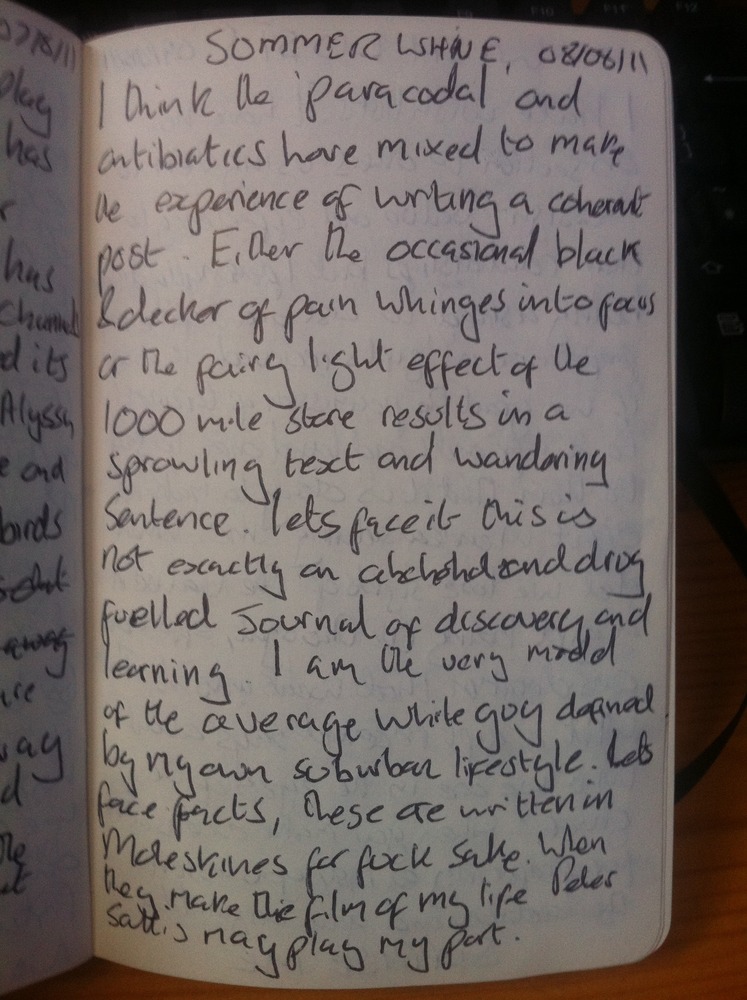 07/6/11
play
has
r
has
Channel
d its
Alyssa
e and
birds
away
are
way
d
the
SOMMER WHINE, 08/06/11
I think the paracodal and
antibiatics have mixed to make
the experience of writing a coherent
post. Either the occasional black
&decker of pain whinges into focus
or the fairy light effect of the
1000 mile stare results in a
sprawling text and wandering
Sentence. lets face it this is
not exactly an and drug
fuelled Journal of discovery and
learning. I am the very model
of the average white guy defined
by my own suburban lifestyle. Lets
face facts, these are written in
Moleskines for fuck sake. When
they make the film of my life Peter
Sallis may play my part.